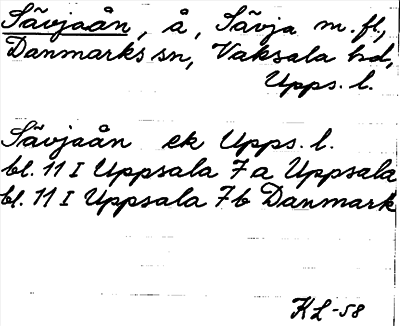 Sävjaån, å, Sävja m.fl.,
Danmarks sn, Vaksala hd,
Upps. l.
Sävjaån ek Upps. l.
bl. 11 I Uppsala 7a Uppsala
bl. 11 I Uppsala 7b Danmark
KL-58